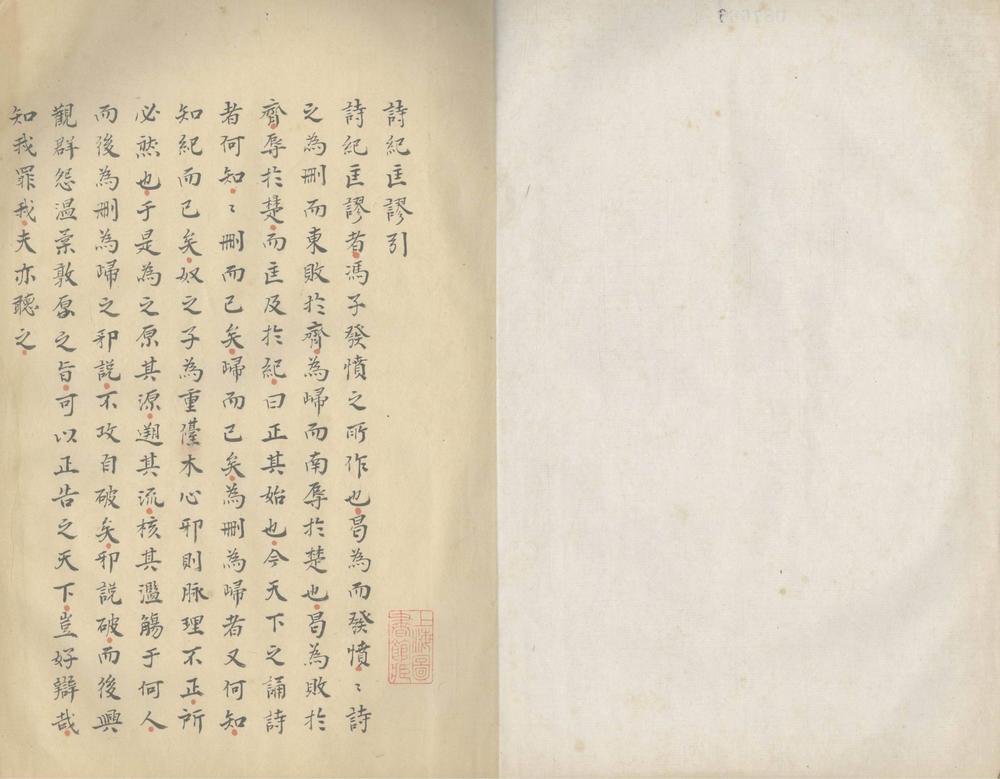 詩紀匡謬引
詩紀匡謬者馮子發憤之所作也曷為而發憤〻詩
之為刪而東敗於齊為歸而南辱於楚也曷為敗於
齊辱於楚而匡及於紀曰正其始也今天下之誦詩
者何知〻刪而已矣歸而已矣為刪為歸者又何知
知紀而已矣奴之子為重儓木心邪則脉理不正所
必然也于是為之原其源遡其流核其濫觴于何人
而後為刪為歸之邪說不攻自破矣邪說破而後興
觀群怨温柔敦厚之旨可以正告之天下豈好辯哉
知我罪我夫亦聽之
上海圖
書館所